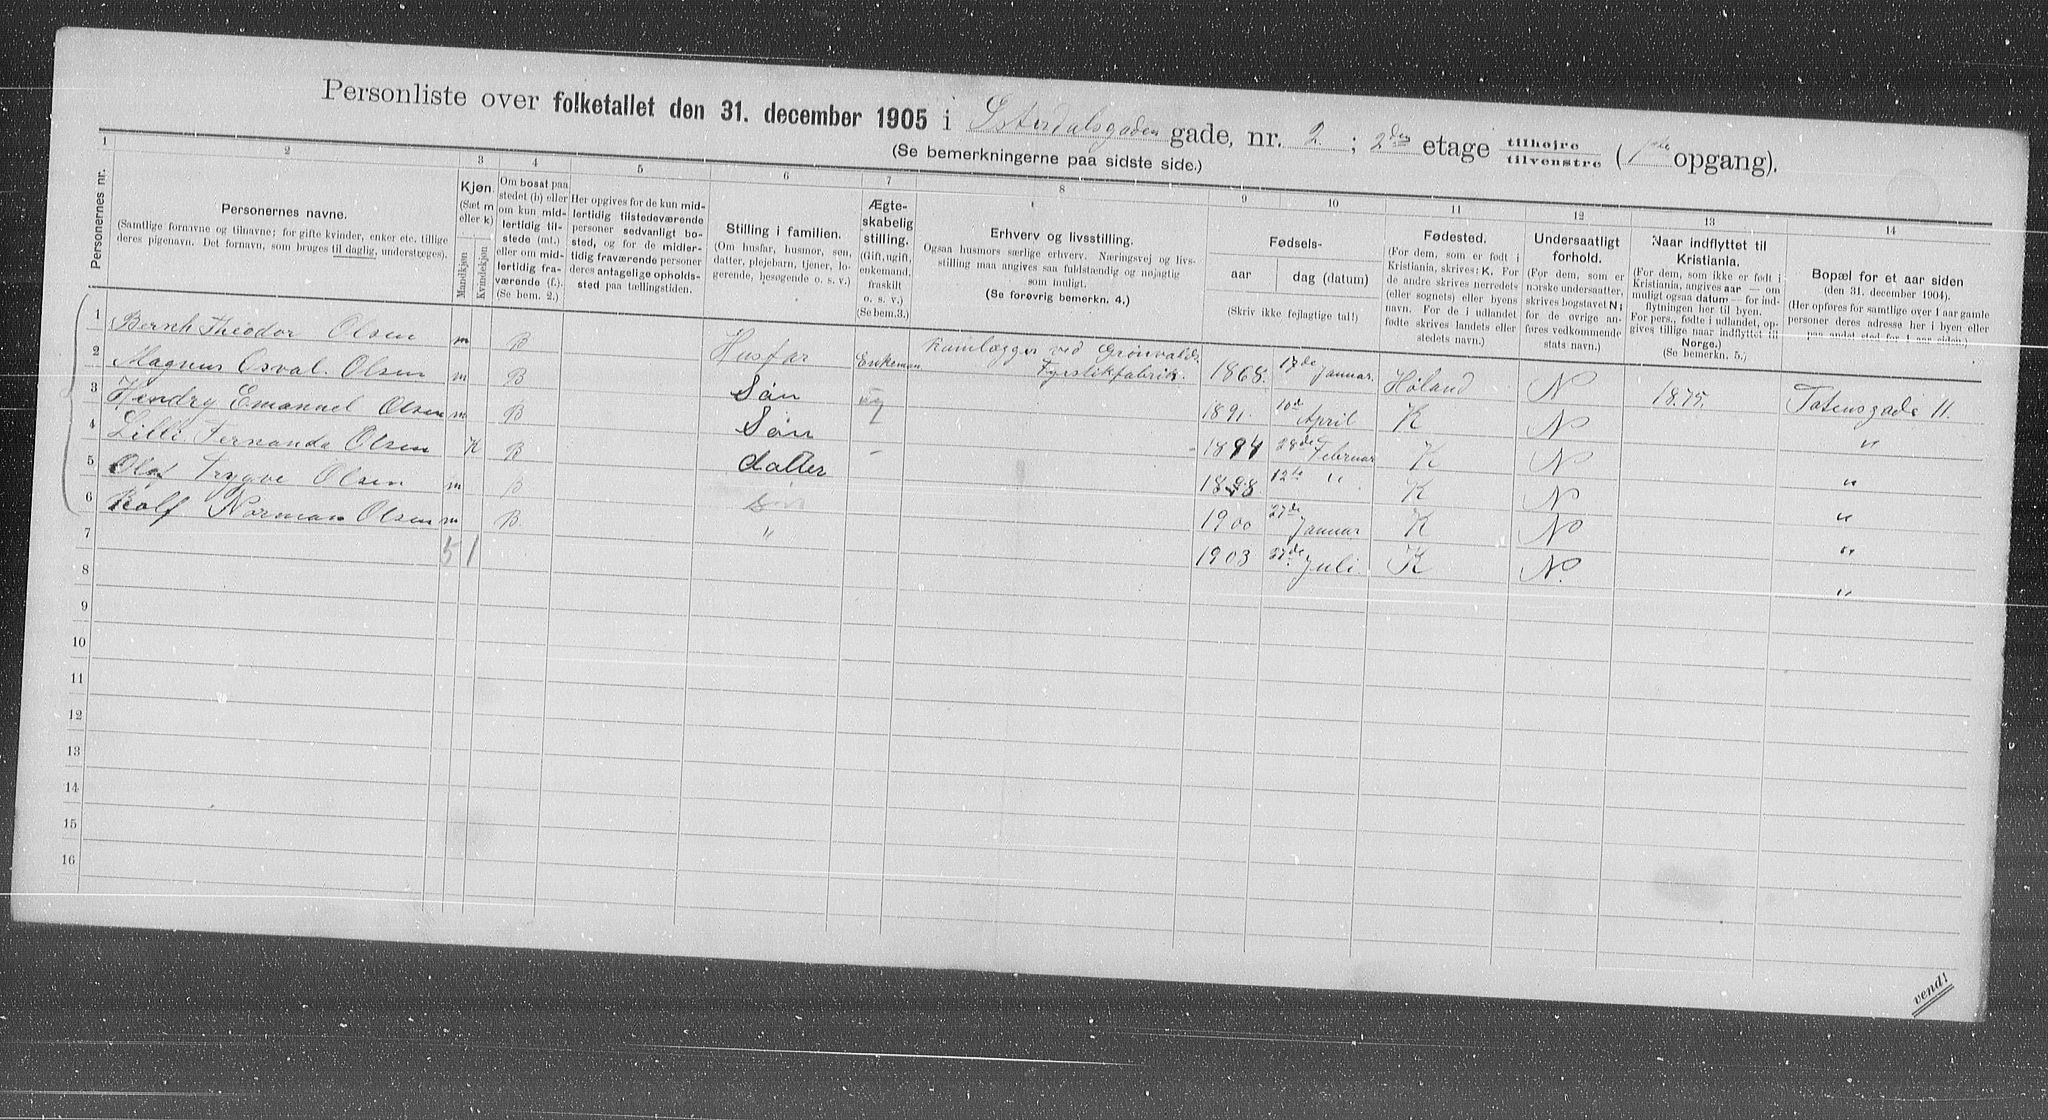 Personliste over folketallet den 31. december 1905 i Østerdalsgaden gade, nr. 2 ; 2den etage tilhøjre tilvenstre ( 1ste opgang).
(Se bemerkningerne paa sidste side.)
1 2 3 4 5 6 7 8 9 10 11 12 13 14
Personernes nr.
Personernes navne.
(Samtlige fornavne og tilnavne; for gifte kvinder, enker etc. tillige
deres pigenavn. Det fornavn, som bruges til daglig, understreges).
Kjøn.
(Sæt m
eller k)
Mandkjøn
Kvindekjøn
Om bosat paa
stedet (b) eller
om kun mid-
lertidig til-
stede (mt.)
eller om mid-
lertidig fra-
værende (f.).
(Se bem. 2.)
Her opgives for de kun mid-
lertidig tilstedeværende
personer sedvanlig bo-
sted, og for de midler-
tidig fraværende personer
deres antagelige opholds-
sted paa tællingstiden.
Stilling i familien.
(Om husfar, husmor, søn,
datter, plejebarn, tjener, lo-
gerende, besøgende o. s. v.)
Ægte-
skabelig
stilling.
(Gift, ugift,
enkemand,
fraskilt
o. s. v.)
(Se bem.3.)
Erhverv og livsstilling.
Ogsaa husmors særlige erhverv. Næringsvej og livs-
stilling maa angives saa fuldstændig og nøjagtig
som muligt.
(Se forøvrig bemerkn. 4.)
Fødsels-
aar
dag (datum)
(Skriv ikke fejlagtige tal!)
Fødested.
(For dem, som er født i
Kristiania, skrives: K. For
de andre skrives herredets
(eller sognets) eller byens
navn. For de i udlandet
fødte skrives landets eller
stedets navn.)
Undersaatligt
forhold.
(For dem, som er
norske undersaatter,
skrives bogstavet N;
for de øvrige an-
føres vedkommende
stats navn.)
Naar indflyttet til
Kristiania.
(For dem, som ikke er født i
Kristiania, angives aar — om
muligt ogsaa datum — for ind-
flytningen her til byen.
For pers., fødte i udlandet, op-
gives tillige naar indflyttet til
Norge.)
(Se bemerkn. 5.)
Bopæl for et aar siden
(den 31. december 1904).
(Her opføres for samtlige over 1 aar gamle
personer deres adresse her i byen eller
paa andet sted for 1 aar siden.)
1 Bernh Theodor Olsen m B Husfar Enkeman ved Grønvolds Fyrstikfabrik. 1868. 17de Januar. Høland N 1875. Totensgade 11.
2 Magnus Osval. Olsen m B Søn ug 1891. 10de April K N "
3 Hendry Emanuel Olsen m B Søn - 1894 28de Februar K N "
4 Lilli Fernanda Olsen K B datter 1898. 12te " K N "
5 Olaf Trygve Olsen m B Søn 1900 27de Januar K N "
6 Rolf Norman Olsen m B. " 1903 27de Juli K N. "
7 5 1
8
9
10
11
12
13
14
15
16
vend!